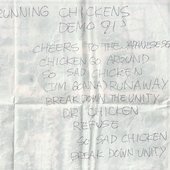 RUNNING CHICKENS
DEMO 91'
CHEERS TO THE JAPANESE
CHICKEN GO AROUND
SO SAD CHICKEN
(I'M GONNA) RUNAWAY
BREAK DOWN THE UNITY
CHICKEN
REFUSE
SO SAD CHICKEN
BREAK DOWN UNITY